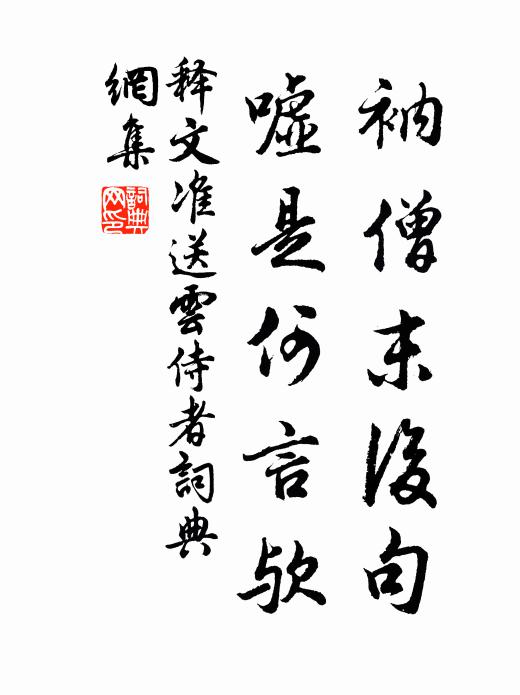 衲僧末後句
嘘是何言欤
释文准送雲侍者詞典
網集
詞典网印